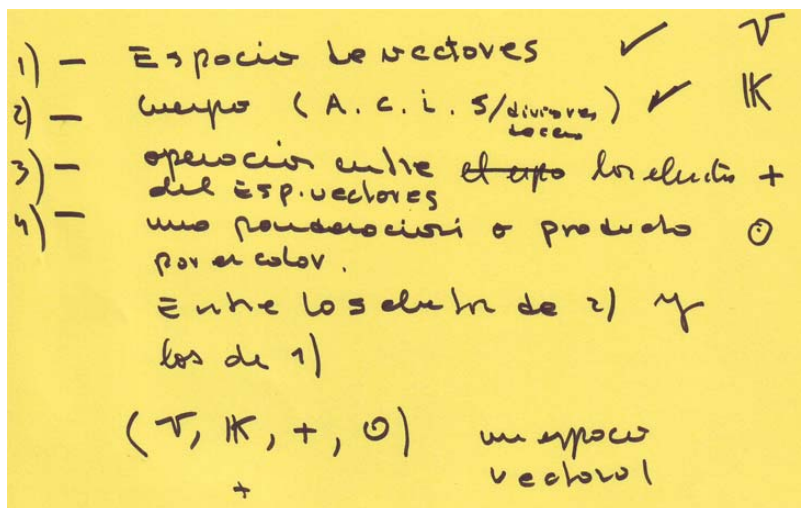 1) - Espacio de vectores ✓ V
2) - cuerpo ( A. C. i. S/divisores de cero ) ✓ K
3) - operacion entre el cupo los elects +
del Esp. vectores
4) - una ponderacion o producto ⊙
por escalar.
Entre los elects de 2) y
los de 1)
(V, K, +, ⊙) un espacio
+ vectorial